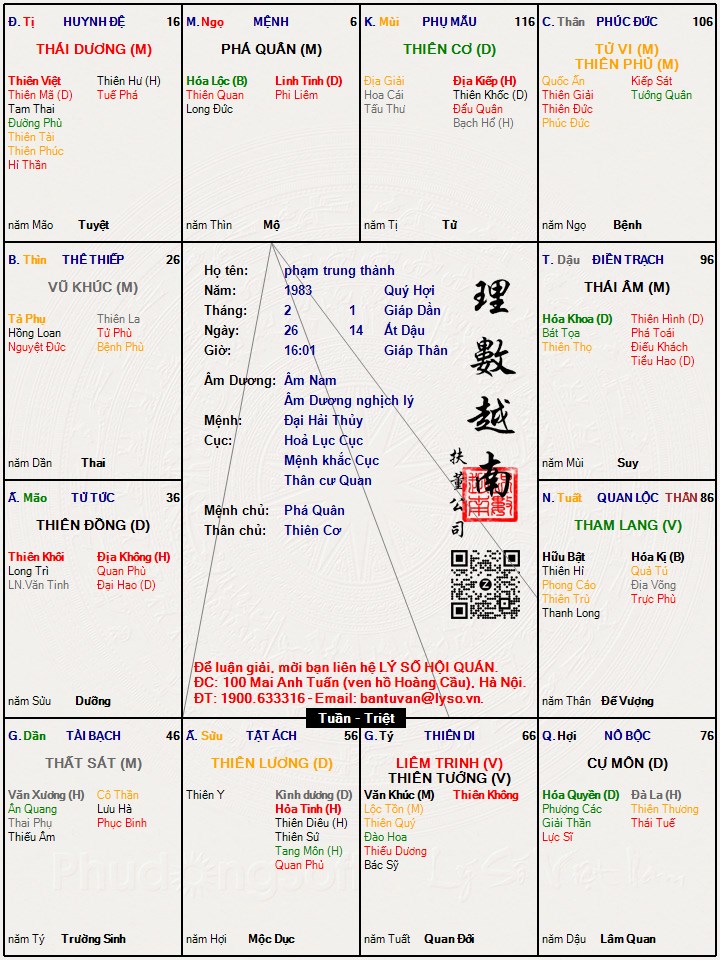 Đ. Tị HUYNH ĐỆ 16
THÁI DƯƠNG (M)
Thiên Việt Thiên Hư (H)
Thiên Mã (D) Tuế Phá
Tam Thai
Đường Phù
Thiên Tài
Thiên Phúc
Hỉ Thần
năm Mão Tuyệt
M. Ngọ MỆNH 6
PHÁ QUÂN (M)
Hóa Lộc (B) Linh Tinh (D)
Thiên Quan Phi Liêm
Long Đức
năm Thìn Mộ
K. Mùi PHỤ MẪU 116
THIÊN CƠ (D)
Địa Giải Địa Kiếp (H)
Hoa Cái Thiên Khốc (D)
Tấu Thư Đẩu Quân
Bạch Hổ (H)
năm Tị Tử
C. Thân PHÚC ĐỨC 106
TỬ VI (M)
THIÊN PHỦ (M)
Quốc Ấn Kiếp Sát
Thiên Giải Tướng Quân
Thiên Đức
Phúc Đức
năm Ngọ Bệnh
B. Thìn THÊ THIẾP 26
VŨ KHÚC (M)
Tả Phụ Thiên La
Hồng Loan Tử Phù
Nguyệt Đức Bệnh Phù
năm Dần Thai
Họ tên: phạm trung thành
Năm: 1983 Quý Hợi
Tháng: 2 1 Giáp Dần
Ngày: 26 14 Ất Dậu
Giờ: 16:01 Giáp Thân
Âm Dương: Âm Nam
Âm Dương nghịch lý
Mệnh: Đại Hải Thủy
Cục: Hoả Lục Cục
Mệnh khắc Cục
Thân cư Quan
Mệnh chủ: Phá Quân
Thân chủ: Thiên Cơ
理數越南
扶董公司
Để luận giải, mời bạn liên hệ LÝ SỐ HỘI QUÁN.
ĐC: 100 Mai Anh Tuấn (ven hồ Hoàng Cầu), Hà Nội.
ĐT: 1900.633316 - Email: bantuvan@lyso.vn.
T. Dậu ĐIỀN TRẠCH 96
THÁI ÂM (M)
Hóa Khoa (D) Thiên Hình (D)
Bát Tọa Phá Toái
Thiên Thọ Điếu Khách
Tiểu Hao (D)
năm Mùi Suy
Ấ. Mão TỬ TỨC 36
THIÊN ĐỒNG (D)
Thiên Khôi Địa Không (H)
Long Trì Quan Phù
LN.Văn Tinh Đại Hao (D)
năm Sửu Dưỡng
N. Tuất QUAN LỘC THÂN 86
THAM LANG (V)
Hữu Bật Hóa Kị (B)
Thiên Hỉ Quả Tú
Phong Cáo Địa Võng
Thiên Trù Trực Phù
Thanh Long
năm Thân Đế Vượng
Tuần - Triệt
G. Dần TÀI BẠCH 46
THẤT SÁT (M)
Văn Xương (H) Cô Thần
Ân Quang Lưu Hà
Thai Phụ Phục Binh
Thiếu Âm
năm Tý Trường Sinh
Ấ. Sửu TẬT ÁCH 56
THIÊN LƯƠNG (D)
Thiên Y Kình dương (D)
Hỏa Tinh (H)
Thiên Diêu (H)
Thiên Sứ
Tang Môn (H)
Quan Phủ
năm Hợi Mộc Dục
G. Tý THIÊN DI 66
LIÊM TRINH (V)
THIÊN TƯỚNG (V)
Văn Khúc (M) Thiên Không
Lộc Tồn (M)
Thiên Quý
Đào Hoa
Thiếu Dương
Bác Sỹ
năm Tuất Quan Đới
Q. Hợi NÔ BỘC 76
CỰ MÔN (D)
Hóa Quyền (D) Đà La (H)
Phượng Các Thiên Thương
Giải Thần Thái Tuế
Lực Sĩ
năm Dậu Lâm Quan